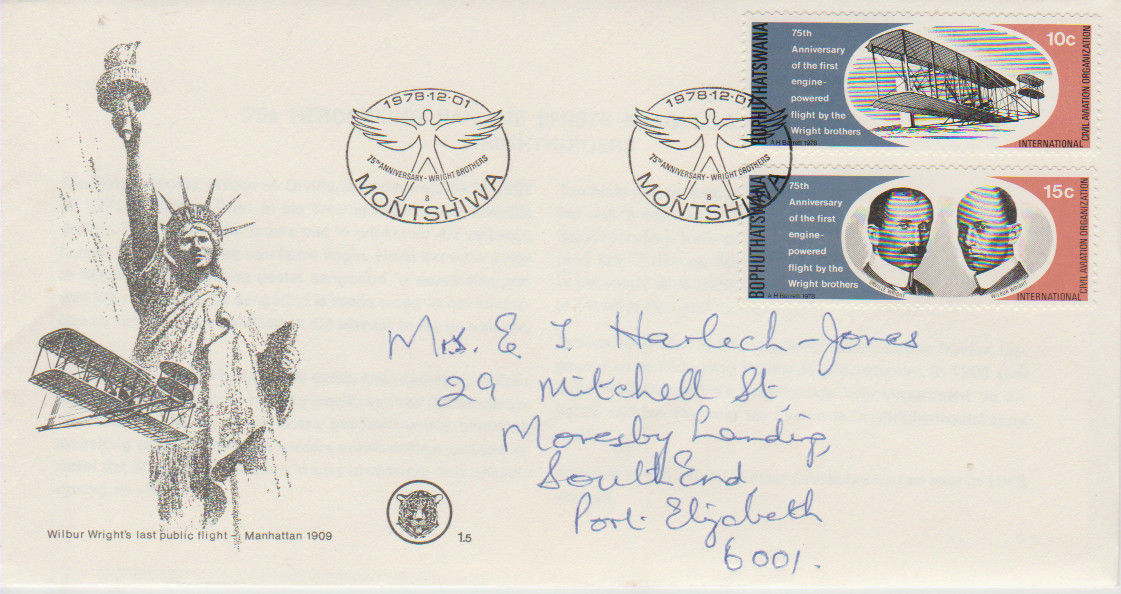 1978·12·01
75TH ANNIVERSARY - WRIGHT BROTHERS
8
MONTSHIWA
1978·12·01
75TH ANNIVERSARY - WRIGHT BROTHERS
8
MONTSHIWA
BOPHUTHATSWANA
75th
Anniversary
of the first
engine-
powered
flight by the
Wright brothers
A H Barrett 1978
10c
INTERNATIONAL
CIVIL AVIATION ORGANIZATION
BOPHUTHATSWANA
75th
Anniversary
of the first
engine-
powered
flight by the
Wright brothers
A H Barrett 1978
15c
ORVILLE WRIGHT
WILBUR WRIGHT
INTERNATIONAL
CIVIL AVIATION ORGANIZATION
Mrs. E J. Harlech-Jones
29 Mitchell St,
Moresby Landing,
South End,
Port Elizabeth
6001.
Wilbur Wright's last public flight - Manhattan 1909
1.5